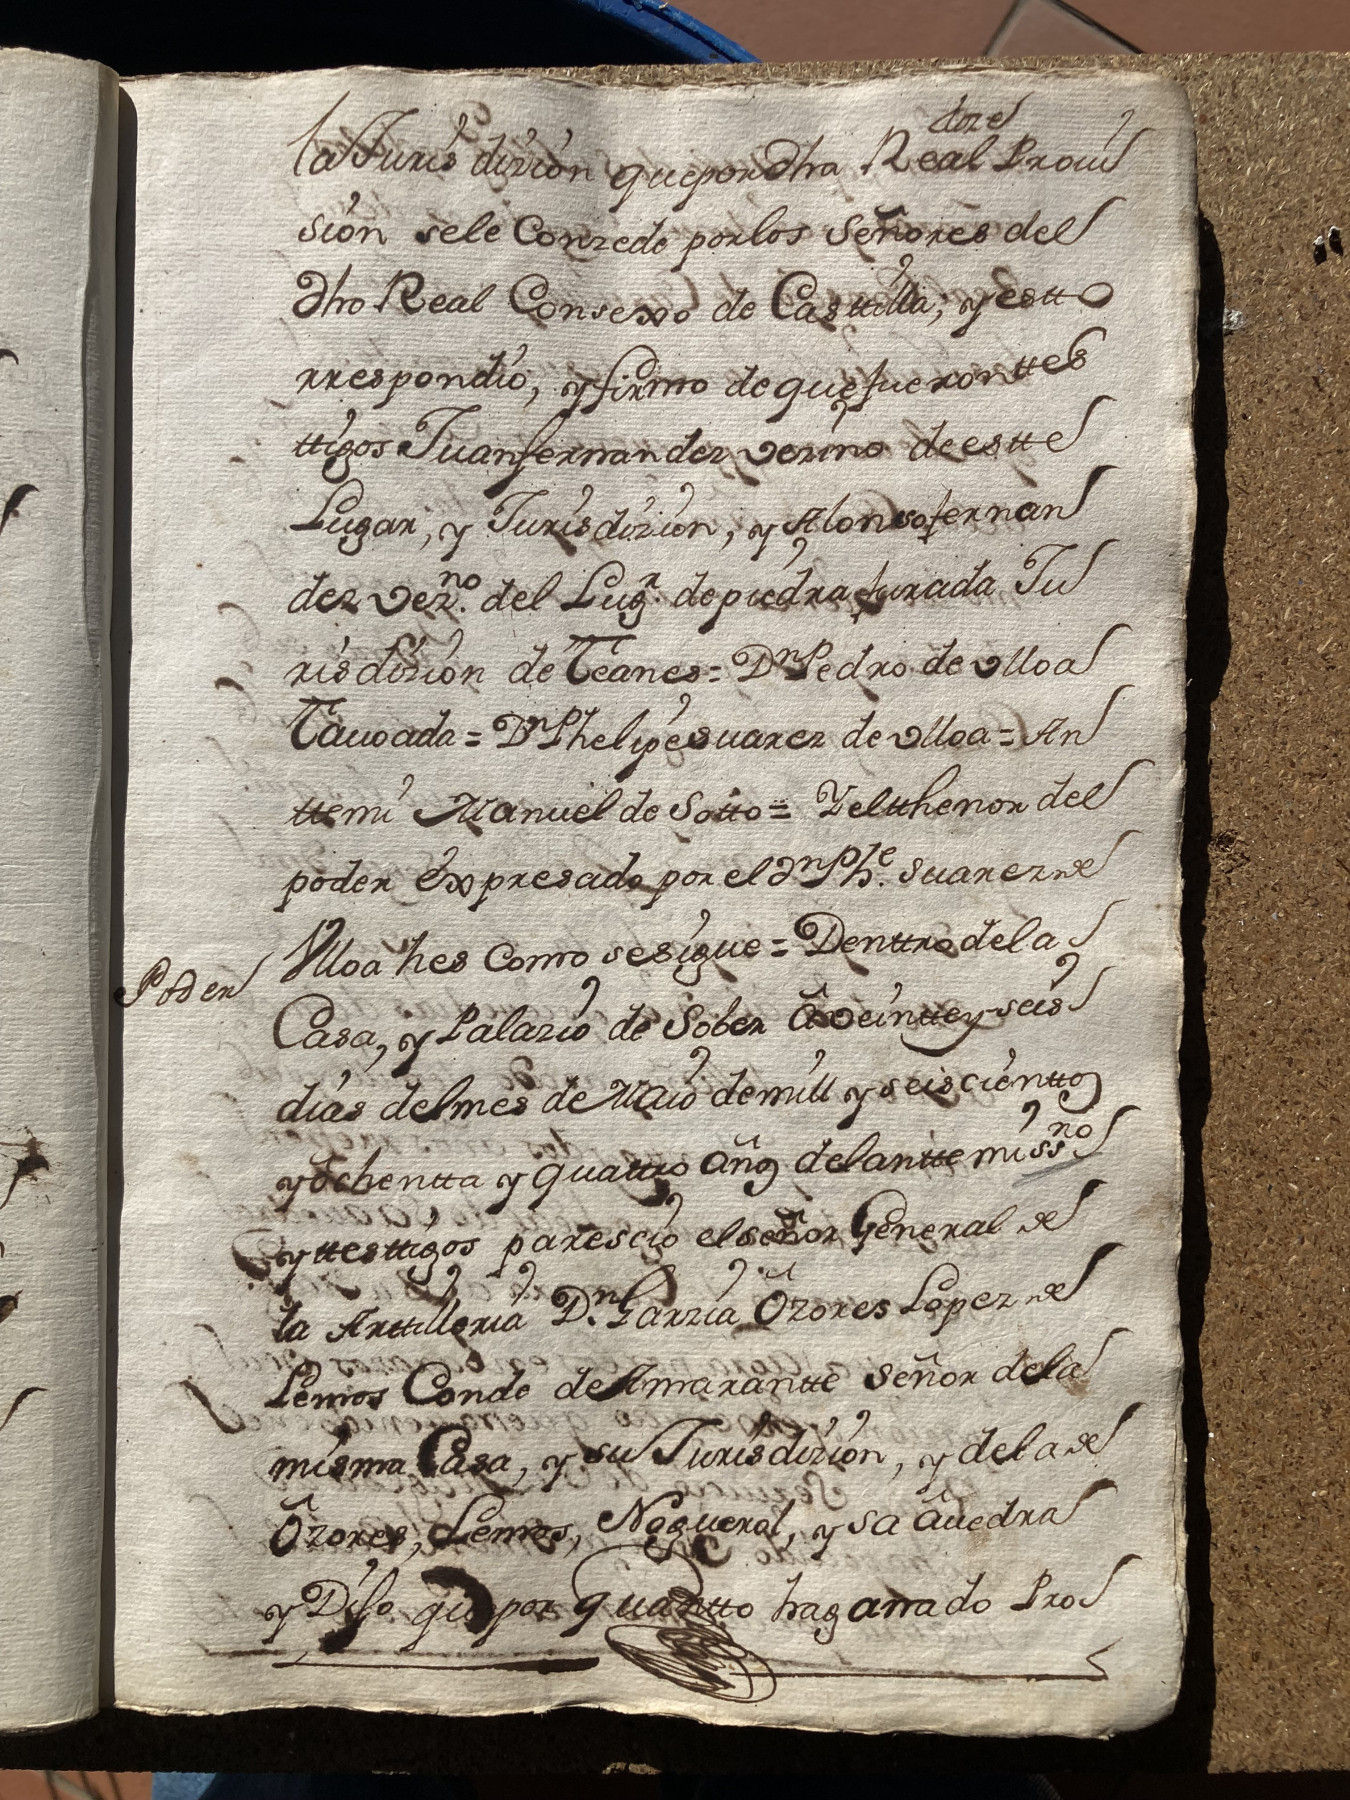 doze
la Jurisdizion que por dha Real Proui
sion se le Conzede por los Señores del
dho Real Consexo de Casttilla, y estto
rrespondio, y firmo de que fueron ttes
ttigos Juan fernandez vezino de estte
Lugar, y Jurisdizion, y Alonso fernan
dez vez.no del Lug.r de piedra furada Ju
risdizion de Teanes = Dn Pedro de Ulloa
Tauoada = Dn Phelipe suarez de Ulloa = An
ttemi Manuel de Sotto = Y el tthenor del
poder expresado por el dn Phe. suarez de
Ulloa hes como se sigue = Denttro de la
Poder
Casa, y Palazio de Sober â veintte y seis
dias del mes de Maio de mill y seiscienttos
y ochentta y quattro años delantte mi ssno
y ttesttigos parescio el señor General de
la Arttilleria D.n Garzia Ozores Lopez de
Lemos Conde de Amarantte Señor de la
misma Casa, y su Jurisdizion, y de la de
Ozores, Lemos, Nogueral, y Saâuedra
y Dijo que por quantto ha ganado Pro